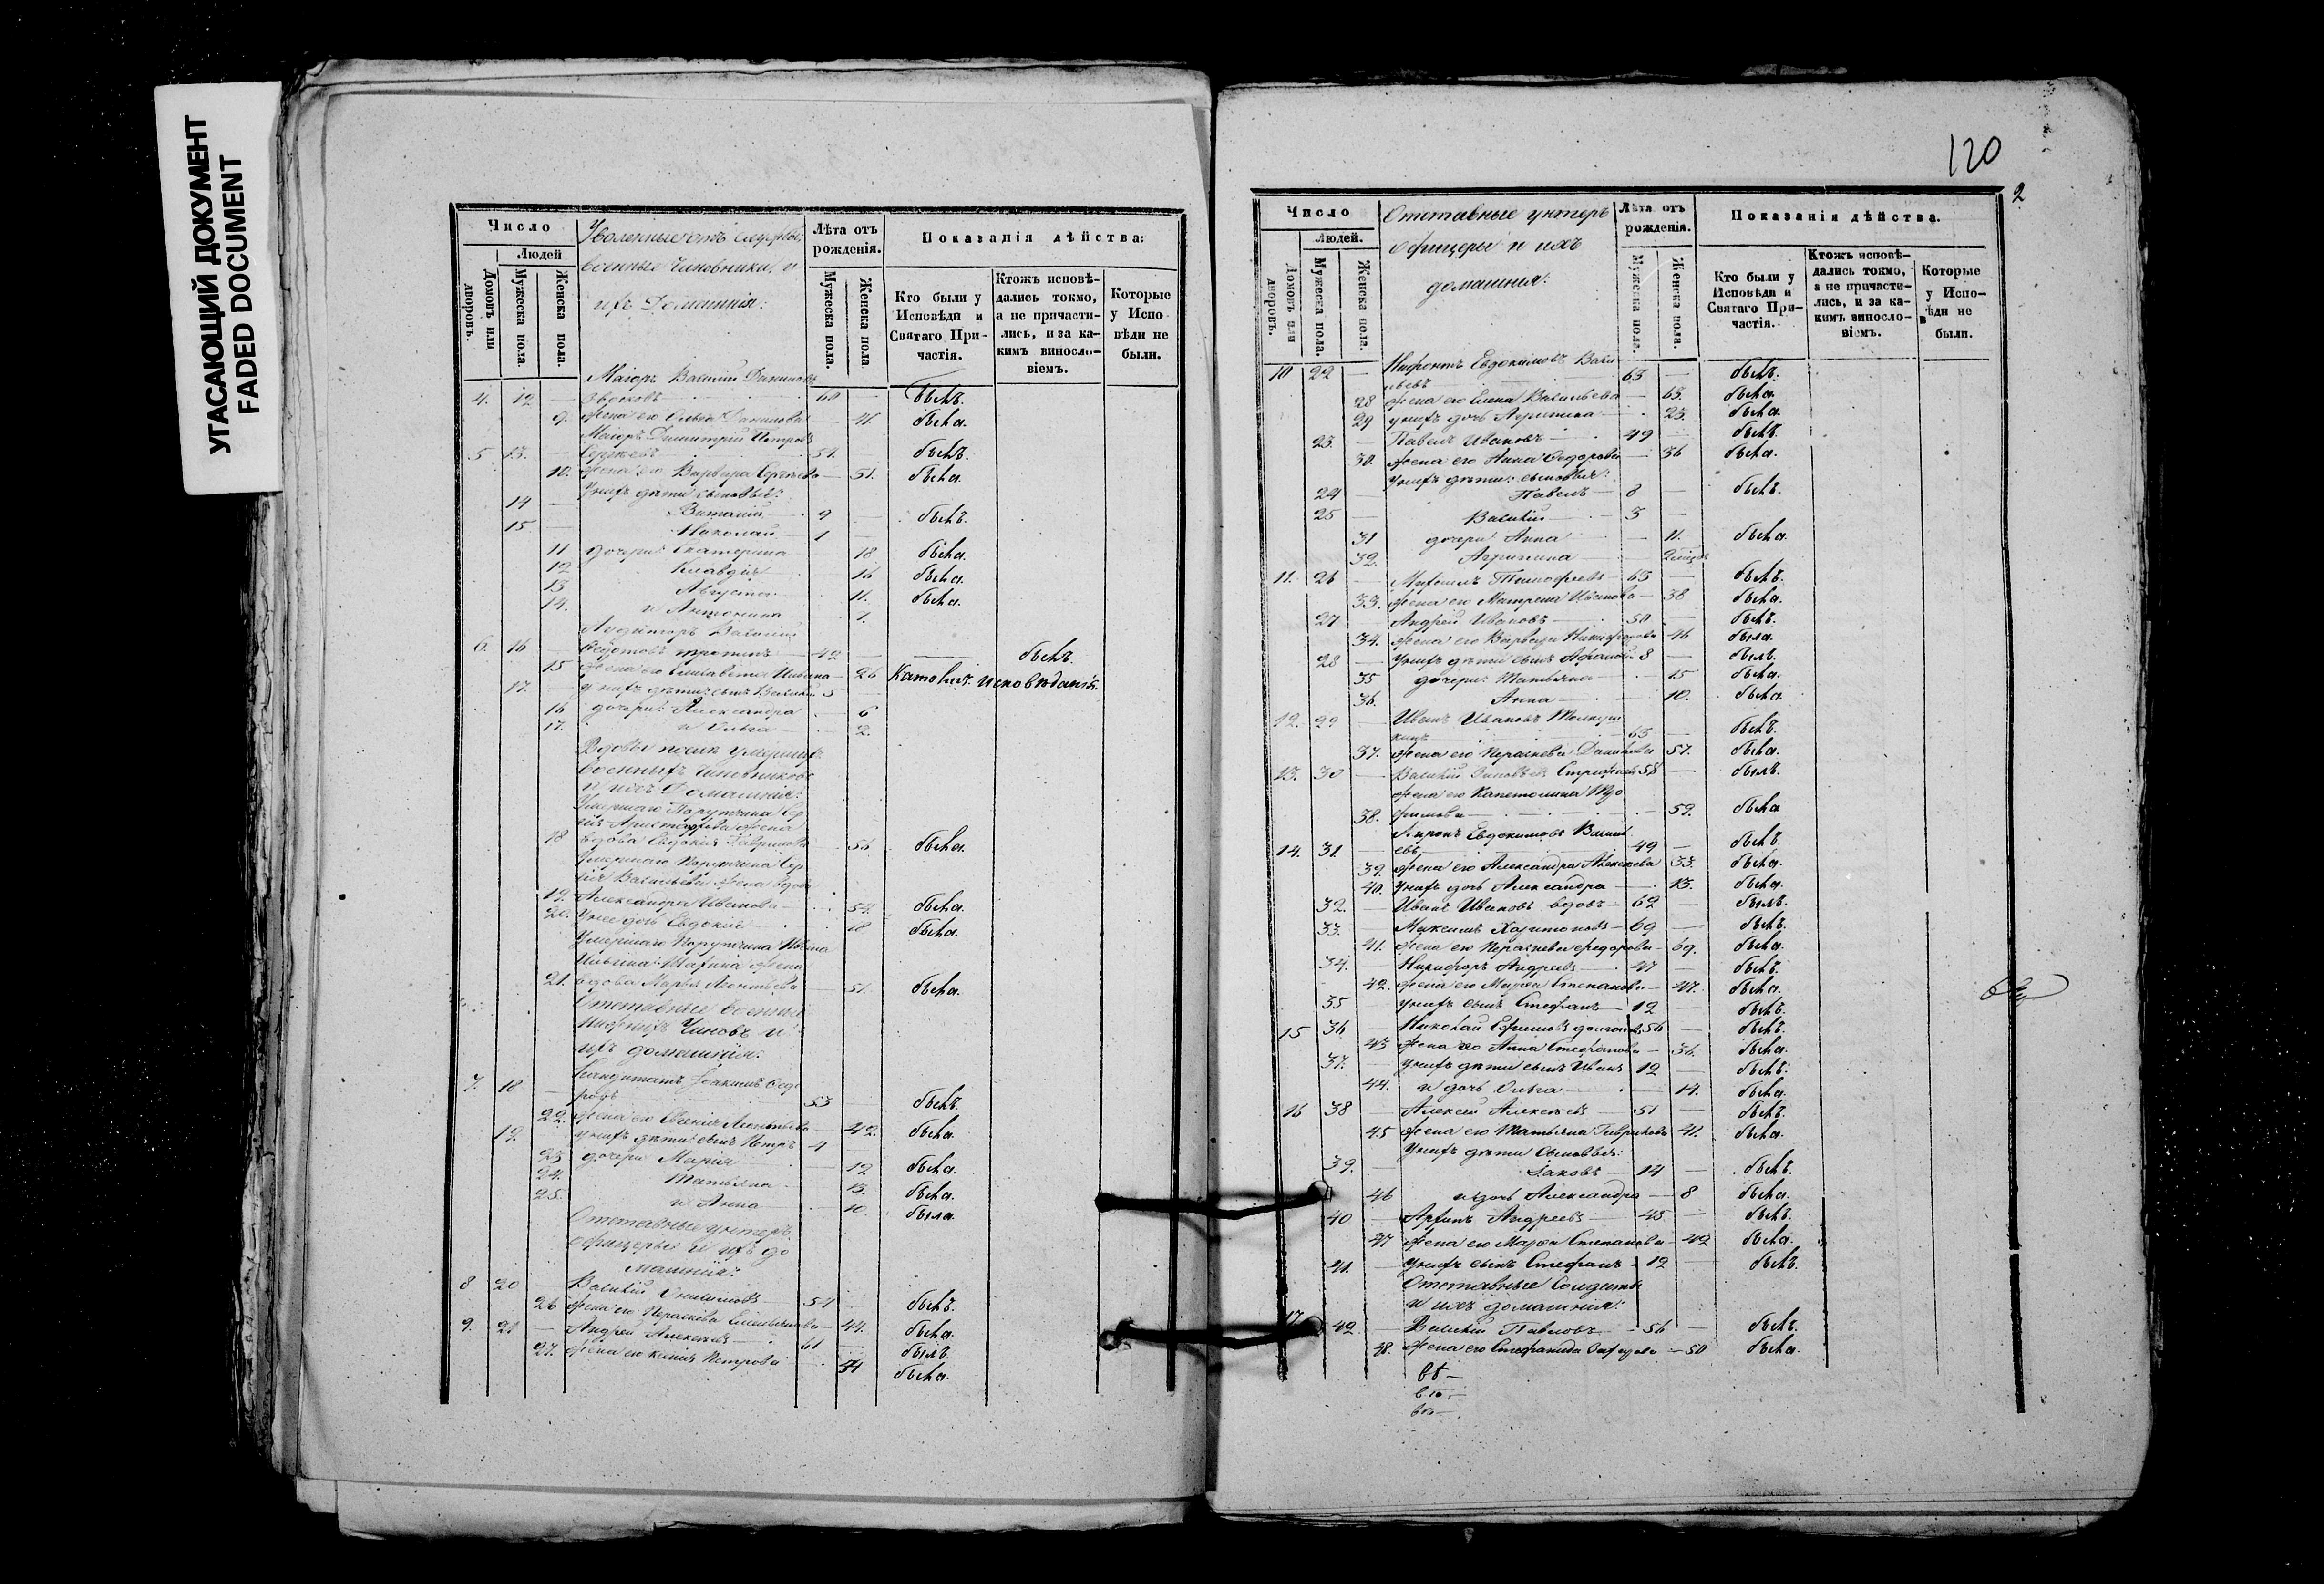 УГАСАЮЩИЙ ДОКУМЕНТ
FADED DOCUMENT
Число
Людей
Домовъ или дворовъ.
Мужеска пола.
Женска пола.
Уволенные отъ службы
военные чиновники, и
ихъ домашнія:
Лѣта отъ рожденія.
Мужеска пола.
Женска пола
Показанія дѣйства:
Кто были у Исповѣди и Святаго Причастія.
Ктожъ исповѣдались токмо, а не причастились, и за какимъ винословіемъ.
Которые у Исповѣди не были.
Маіоръ Василій
4. 12 — 60 — былъ.
9. жена его Ольга Данилова — 41. была.
Маіоръ Димитрій Петровъ
5 13. — Сергѣевъ 51. былъ.
10. жена его Варвара Сергѣева — 31. была.
У нихъ дѣти сыновья:
14 — Виталій 9 — былъ.
15 — Николай — 1 —
11 дочери: Екатерина 18 была.
12 Клавдія 16 была.
13 Августа 11. была.
14. и Антонина 7.
Аудиторъ Василій
6. 16 — 42 — былъ.
15 жена его Елисавета — 26 Католич: исповѣданія.
17. — у нихъ дѣти: сынъ Василій 5 —
16 дочери: Александра 6
17. и Ольга 2.
Вдовы послѣ умершихъ
военныхъ чиновниковъ
и ихъ домашнія:
Умершаго Порутчика
жена
18 вдова Евдокія 56 была.
Умершаго Порутчика
Васильева жена вдова
19. Александра Иванова — 54. была.
20. У нее дочь Евдокія 18 была.
Умершаго Порутчика Ивана
жена
21. вдова Марья Леонтьева 51. была.
Отставные военные
нижнихъ чиновъ и
ихъ домашнія:
7. 18 — 53 — былъ.
22. жена его 42. была.
19. у нихъ дѣти: сынъ Петръ 4
23 дочери Марія 19 была.
24. Татьяна 13. была.
25. и Анна 10. была.
Отставные унтеръ
офицеры и ихъ до
машнія:
8 20 — Василій 54 — былъ.
26 жена его 44. была.
9. 21 — Андрей Алексѣевъ 61 — былъ.
27. жена его Петрова 71 была.
120
2
Число
Людей.
Домовъ или дворовъ.
Мужеска пола.
Женска пола.
Отставные унтеръ
офицеры и ихъ
домашнія:
Лѣта отъ рожденія.
Мужеска пола.
Женска поля.
Показанія дѣйства.
Кто были у Исповѣди и Святаго Причастія.
Ктожъ исповѣдались токмо, а не причастились, и за какимъ винословіемъ.
Которые у Исповѣди не были.
10 22 — Нифонтъ Евдокимовъ Васи
льевъ 63 — былъ.
28 жена его Елена Васильева — 63. была.
29 у нихъ дочь Агрипина 23. была.
23. — Павелъ Ивановъ 49 — былъ.
30. жена его Анна Федорова — 36 была.
У нихъ дѣти: сыновья:
24 — Павелъ — 8 — былъ.
25 — Василій — 3 —
31 дочери Анна — 11. была.
32. Агрипина
11. 26 — Михаилъ Тимофеевъ — 65 — былъ.
33. жена его Матрена Иванова — 38 была.
27 — Андрей Ивановъ — 50 — былъ.
34. жена его Варвара Никифорова 46 была.
28 — у нихъ дѣти сынъ 8 — былъ.
35 дочери: Татьяна — 15 была.
36. Анна — 10. была.
12. 29 — Иванъ Ивановъ
65 — былъ.
37. жена его Параскева Данилова 57. была.
13. 30 — Василій 58 — былъ.
жена его Капетолина
38. 59. была
Евдокимовъ Василь
14. 31. — евъ 49 — былъ.
39. жена его Александра Алексеева 33. была.
40. у нихъ дочь Александра 13. была.
32. — Иванъ Ивановъ вдовъ — 62 — былъ.
33. — Максимъ Харитоновъ — 69 — былъ.
41. жена его Параскева Федорова — 69. была.
34. — Никифоръ Андреевъ — 47 — былъ.
42. жена его Марфа Степанова — 47. была.
35 — у нихъ сынъ Стефанъ — 12 — былъ.
15 36 — Николай Ефимовъ 56 — былъ.
43 жена его Анна Стефанова — 36. была.
37. — у нихъ дѣти сынъ Иванъ 12 — былъ.
44. и дочь Ольга — 14. была.
16 38 — Алексей Алексеевъ — 51 — былъ.
45 жена его Татьяна Гаврилова 41. была.
У нихъ дѣти сыновья:
39. — Іаковъ — 14 — былъ.
46 и дочь Александра — 8 была.
40 — Андреевъ — 45 — былъ.
47 жена его Марфа Степанова — 42 была.
41. — у нихъ сынъ Стефанъ — 12 — былъ.
Отставные солдаты
и ихъ домашнія:
17 42 — Василій Павловъ — 56 — былъ.
48. жена его Стефанида — 50 была.